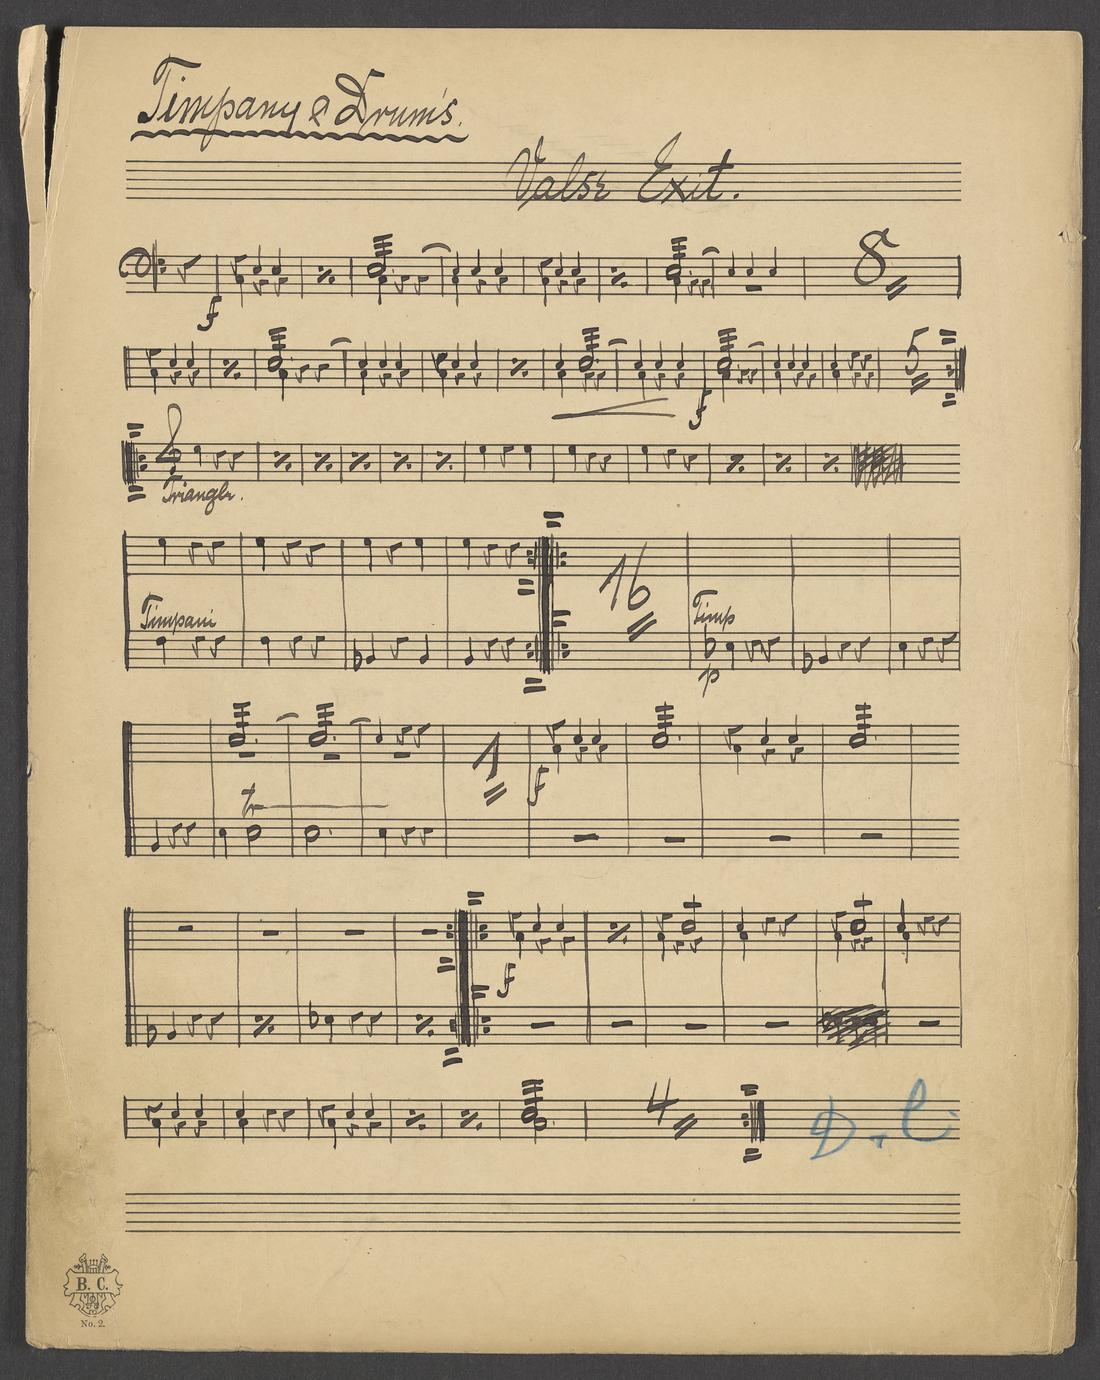 Timpany & Drums.
Valse Exit.
f
8
f
5
Triangle.
16
Timpani
Timp
p
1
f
tr
f
4
D. C.
B. C.
No. 2.